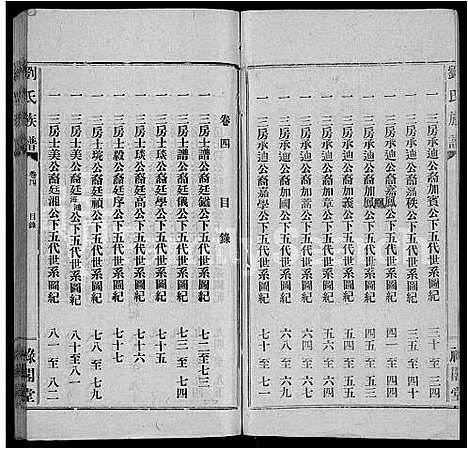 劉氏族譜
一 三房承迪公裔加賓公下五代世系圖紀 三十至三四
一 三房承迪公裔嘉秩公下五代世系圖紀 三五至四十
一 三房承迪公裔加
公下五代世系圖紀 四一至四四
一 三房承迪公裔加鳳公下五代世系圖紀 四五至五一
一 三房承迪公裔加義公下五代世系圖紀
一 三房承迪公裔加章公下五代世系圖紀
一 三房承迪公裔加國公下五代世系圖紀 六八至六九
一 三房承迪公裔嘉學公下五代世系圖紀 七十至七一
卷四 目錄
一 三房士譜公裔廷鑑公下五代世系圖紀 七二至七三
一 三房士譜公裔廷儀公下五代世系圖紀 七三至七四
一 三房士琰公裔廷學公下五代世系圖紀 七十五
一 三房士琰公裔廷高公下五代世系圖紀 七十六
一 三房士毅公裔廷序公下五代世系圖紀 七十七
一 三房士琬公裔廷禎公下五代世系圖紀 七八至七九
一 三房士美公裔廷
公下五代世系圖紀 八十
一 三房士美公裔廷湘公下五代世系圖紀 八一至八二
劉氏族譜 卷四 目錄 祿閣堂